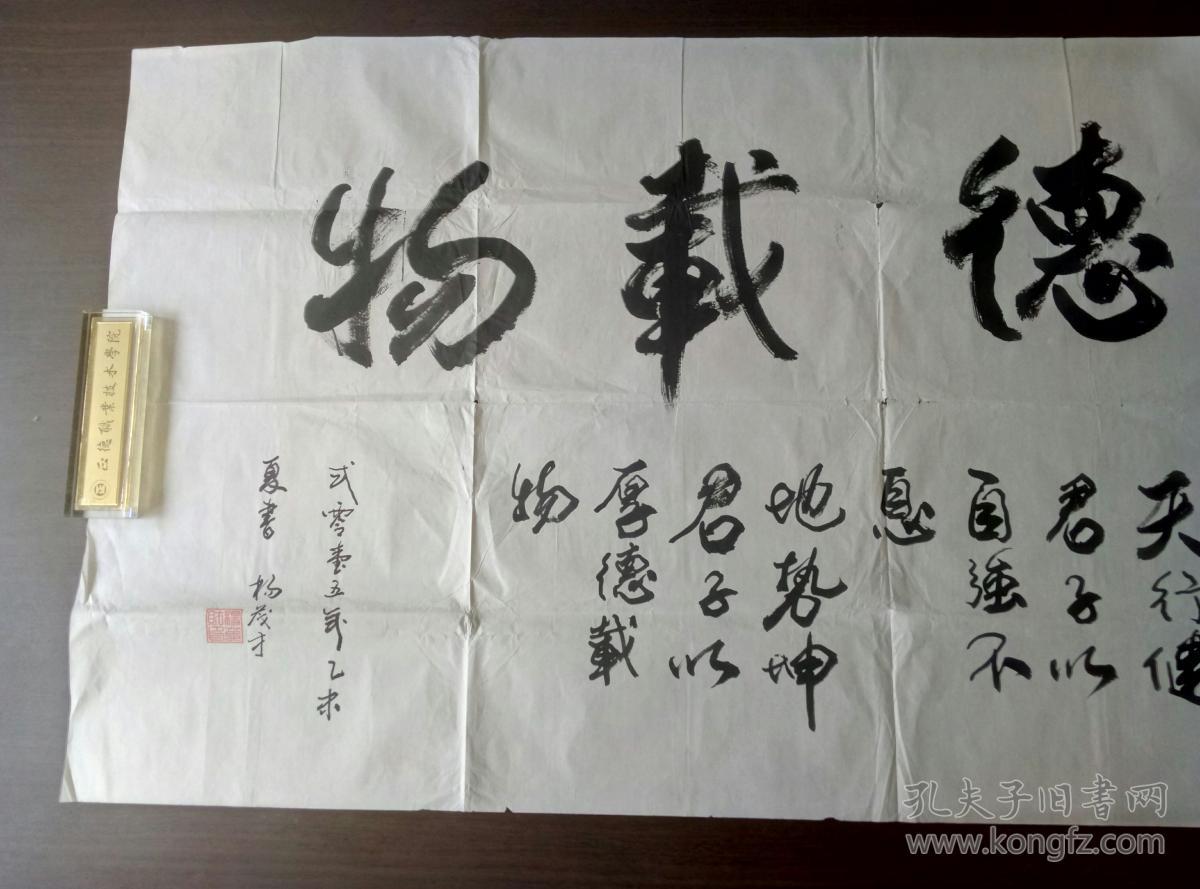 德載物
天行健
君子以
自強不
息
地勢坤
君子以
厚德載
物
弍零壹五年乙未
夏書 楊茂才
正德職業技术學院
孔夫子旧書网
www.kongfz.com